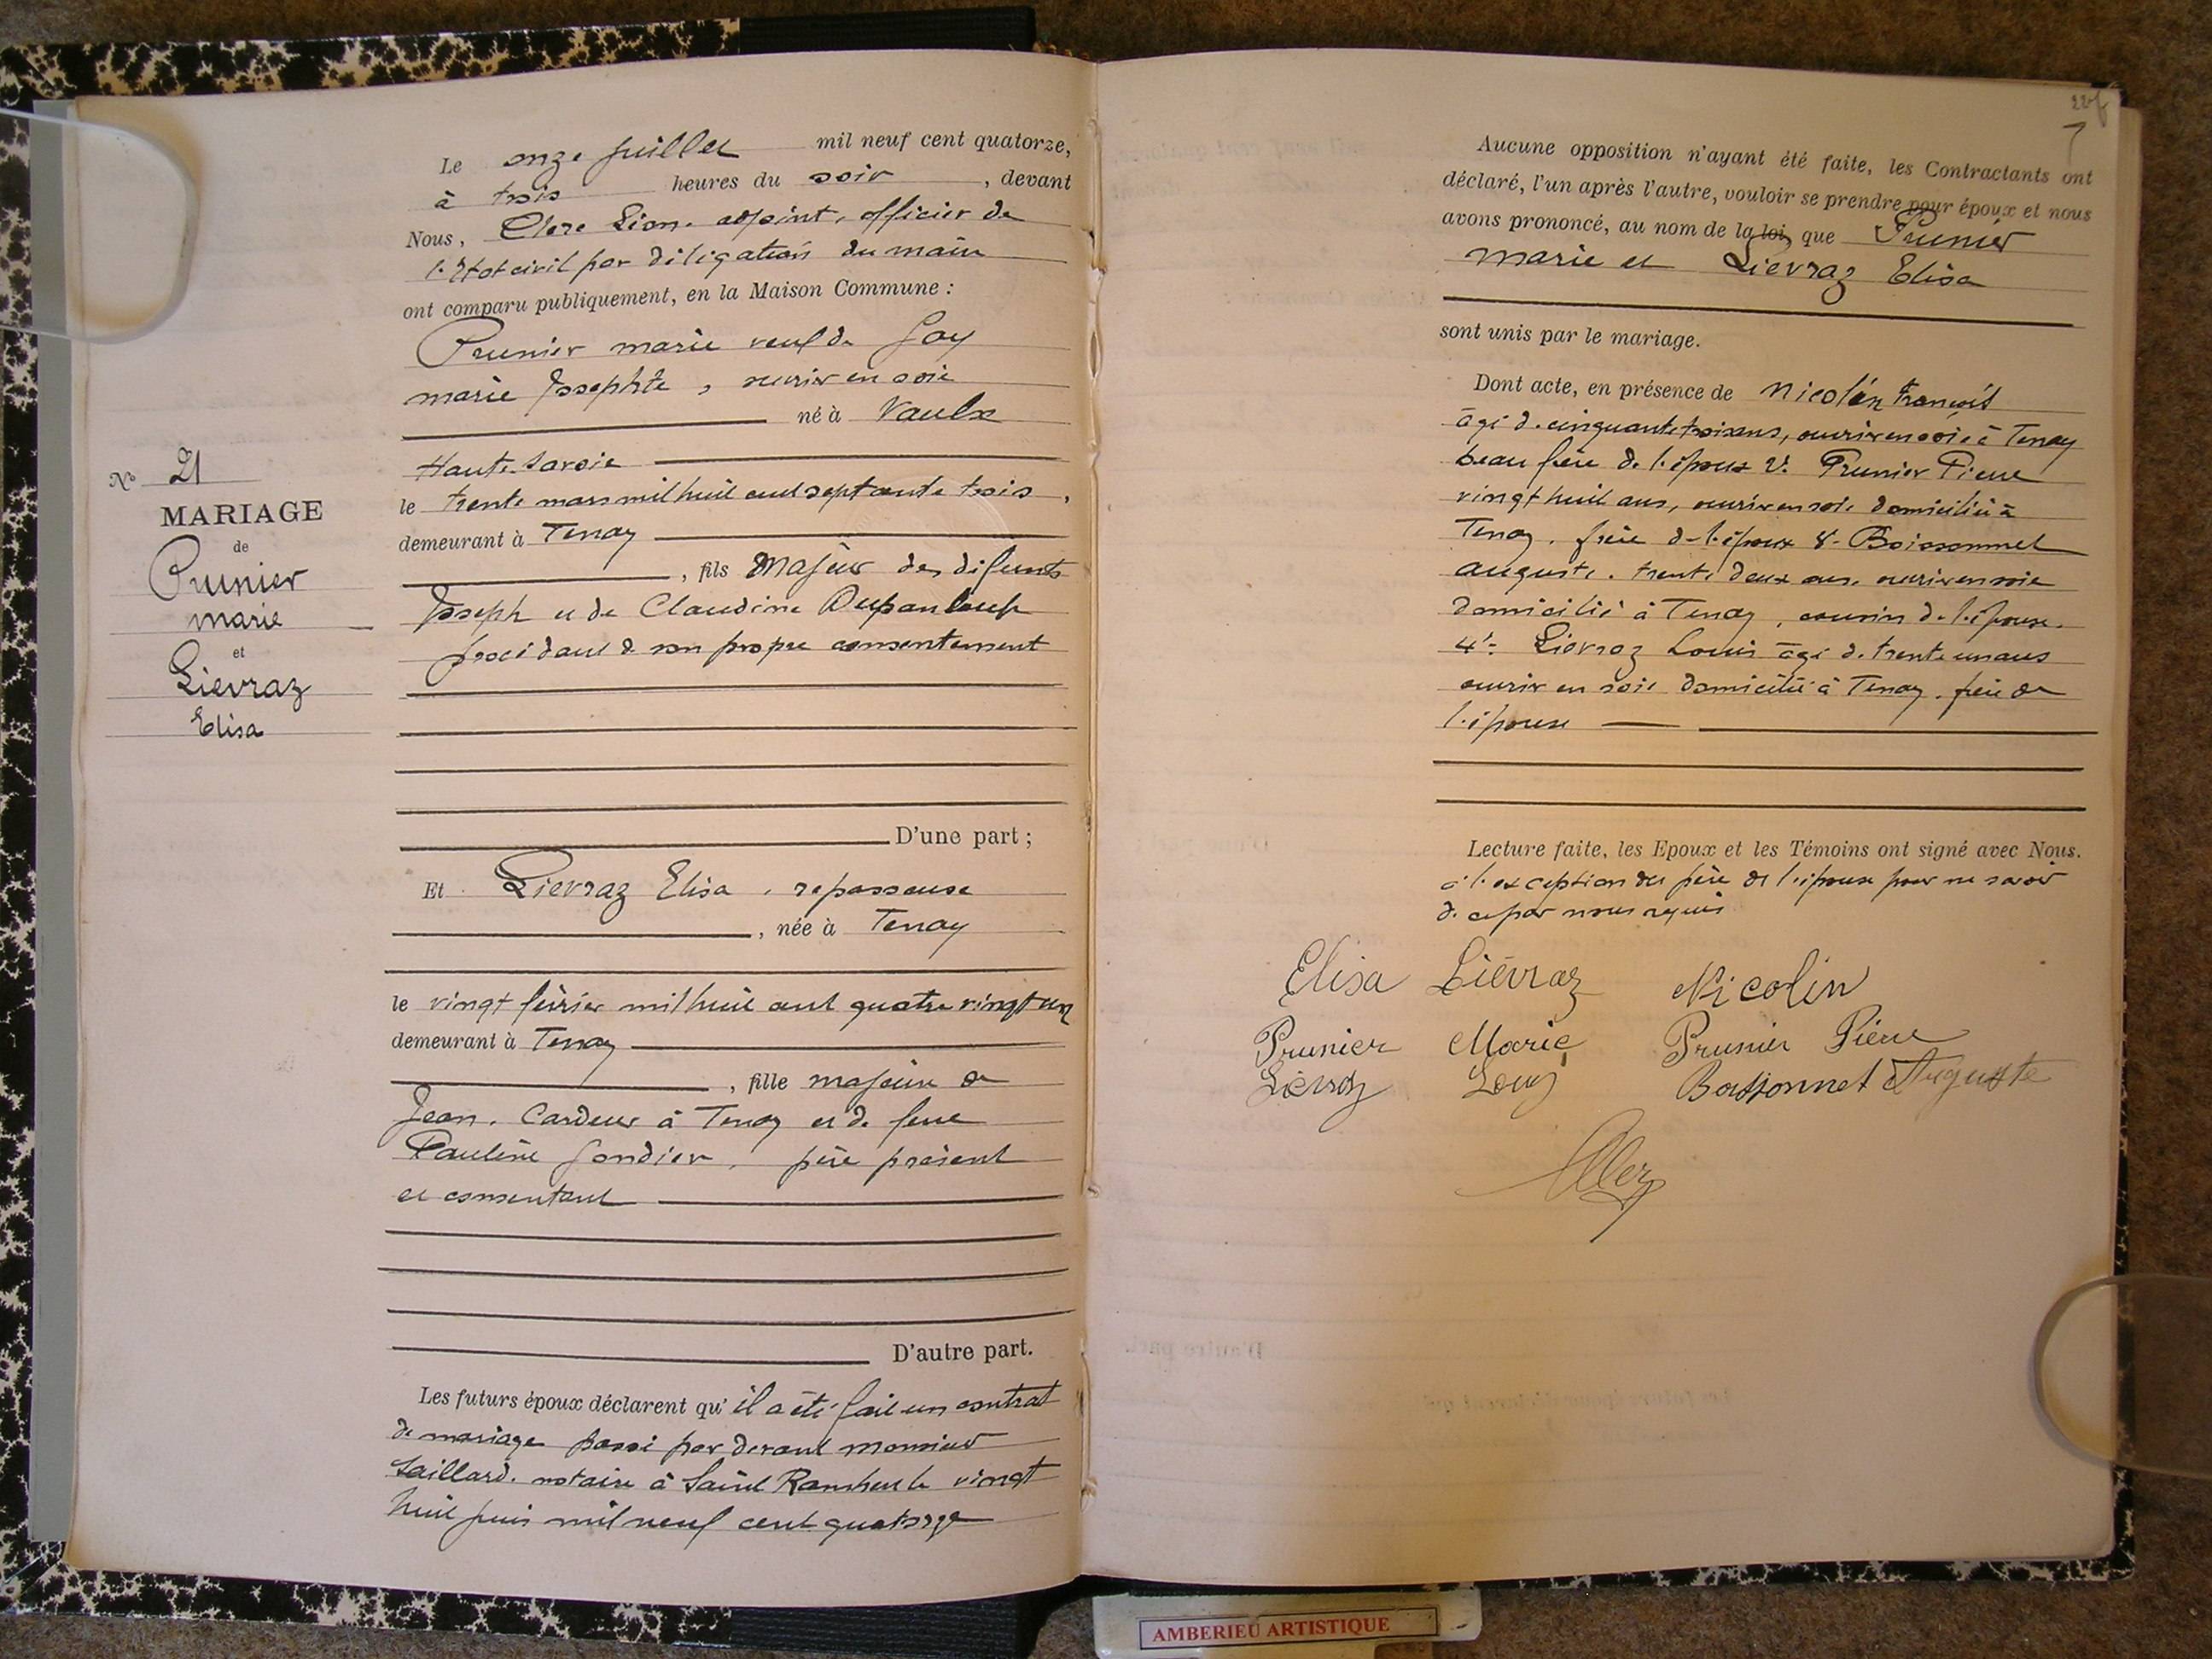 N° 21
MARIAGE
de
Prunier
marie
et
Liévraz
Elisa
Le onze juillet mil neuf cent quatorze,
à trois heures du soir, devant
Nous, Clerc Léon. adjoint, officier de
l'Etat civil par délégation du maire
ont comparu publiquement, en la Maison Commune :
Prunier marie veuf de Goy
marie Josephte, ouvrier en soie
né à Vaulx
Haute-Savoie
le trente mars mil huit cent septante trois,
demeurant à Tenay
, fils Majeur des défunts
Joseph et de Claudine Dupanloup
procédant de son propre consentement
D'une part ;
Et Liévraz Elisa, repasseuse
, née à Tenay
le vingt février mil huit cent quatre vingt un
demeurant à Tenay
, fille majeure de
Jean, Cardeur à Tenay et de feue
Pauline Gondier, père présent
et consentant
D'autre part.
Les futurs époux déclarent qu'il a été fait un contrat
de mariage passé par devant monsieur
Saillard, notaire à Saint Rambert le vingt
huit juin mil neuf cent quatorze
7
Aucune opposition n'ayant été faite, les Contractants ont
déclaré, l'un après l'autre, vouloir se prendre pour époux et nous
avons prononcé, au nom de la loi, que Prunier
marie et Liévraz Elisa
sont unis par le mariage.
Dont acte, en présence de Nicolin François
âgé de cinquante trois ans, ouvrier en soie à Tenay
beau frère de l'époux 2° Prunier Pierre
vingt huit ans, ouvrier en soie domicilié à
Tenay, frère de l'époux 3° Boissonnet
auguste, trente deux ans, ouvrier en soie
domicilié à Tenay, cousin de l'épouse.
4° Liévraz Louis âgé de trente un ans
ouvrier en soie domicilié à Tenay, frère de
l'épouse
Lecture faite, les Epoux et les Témoins ont signé avec Nous.
à l'exception du père de l'épouse pour ne savoir
de ce par nous requis
Elisa Liévraz Nicolin
Prunier Marie Prunier Pierre
Liévraz Louis Boissonnet Auguste
Clerc
AMBERIEU ARTISTIQUE